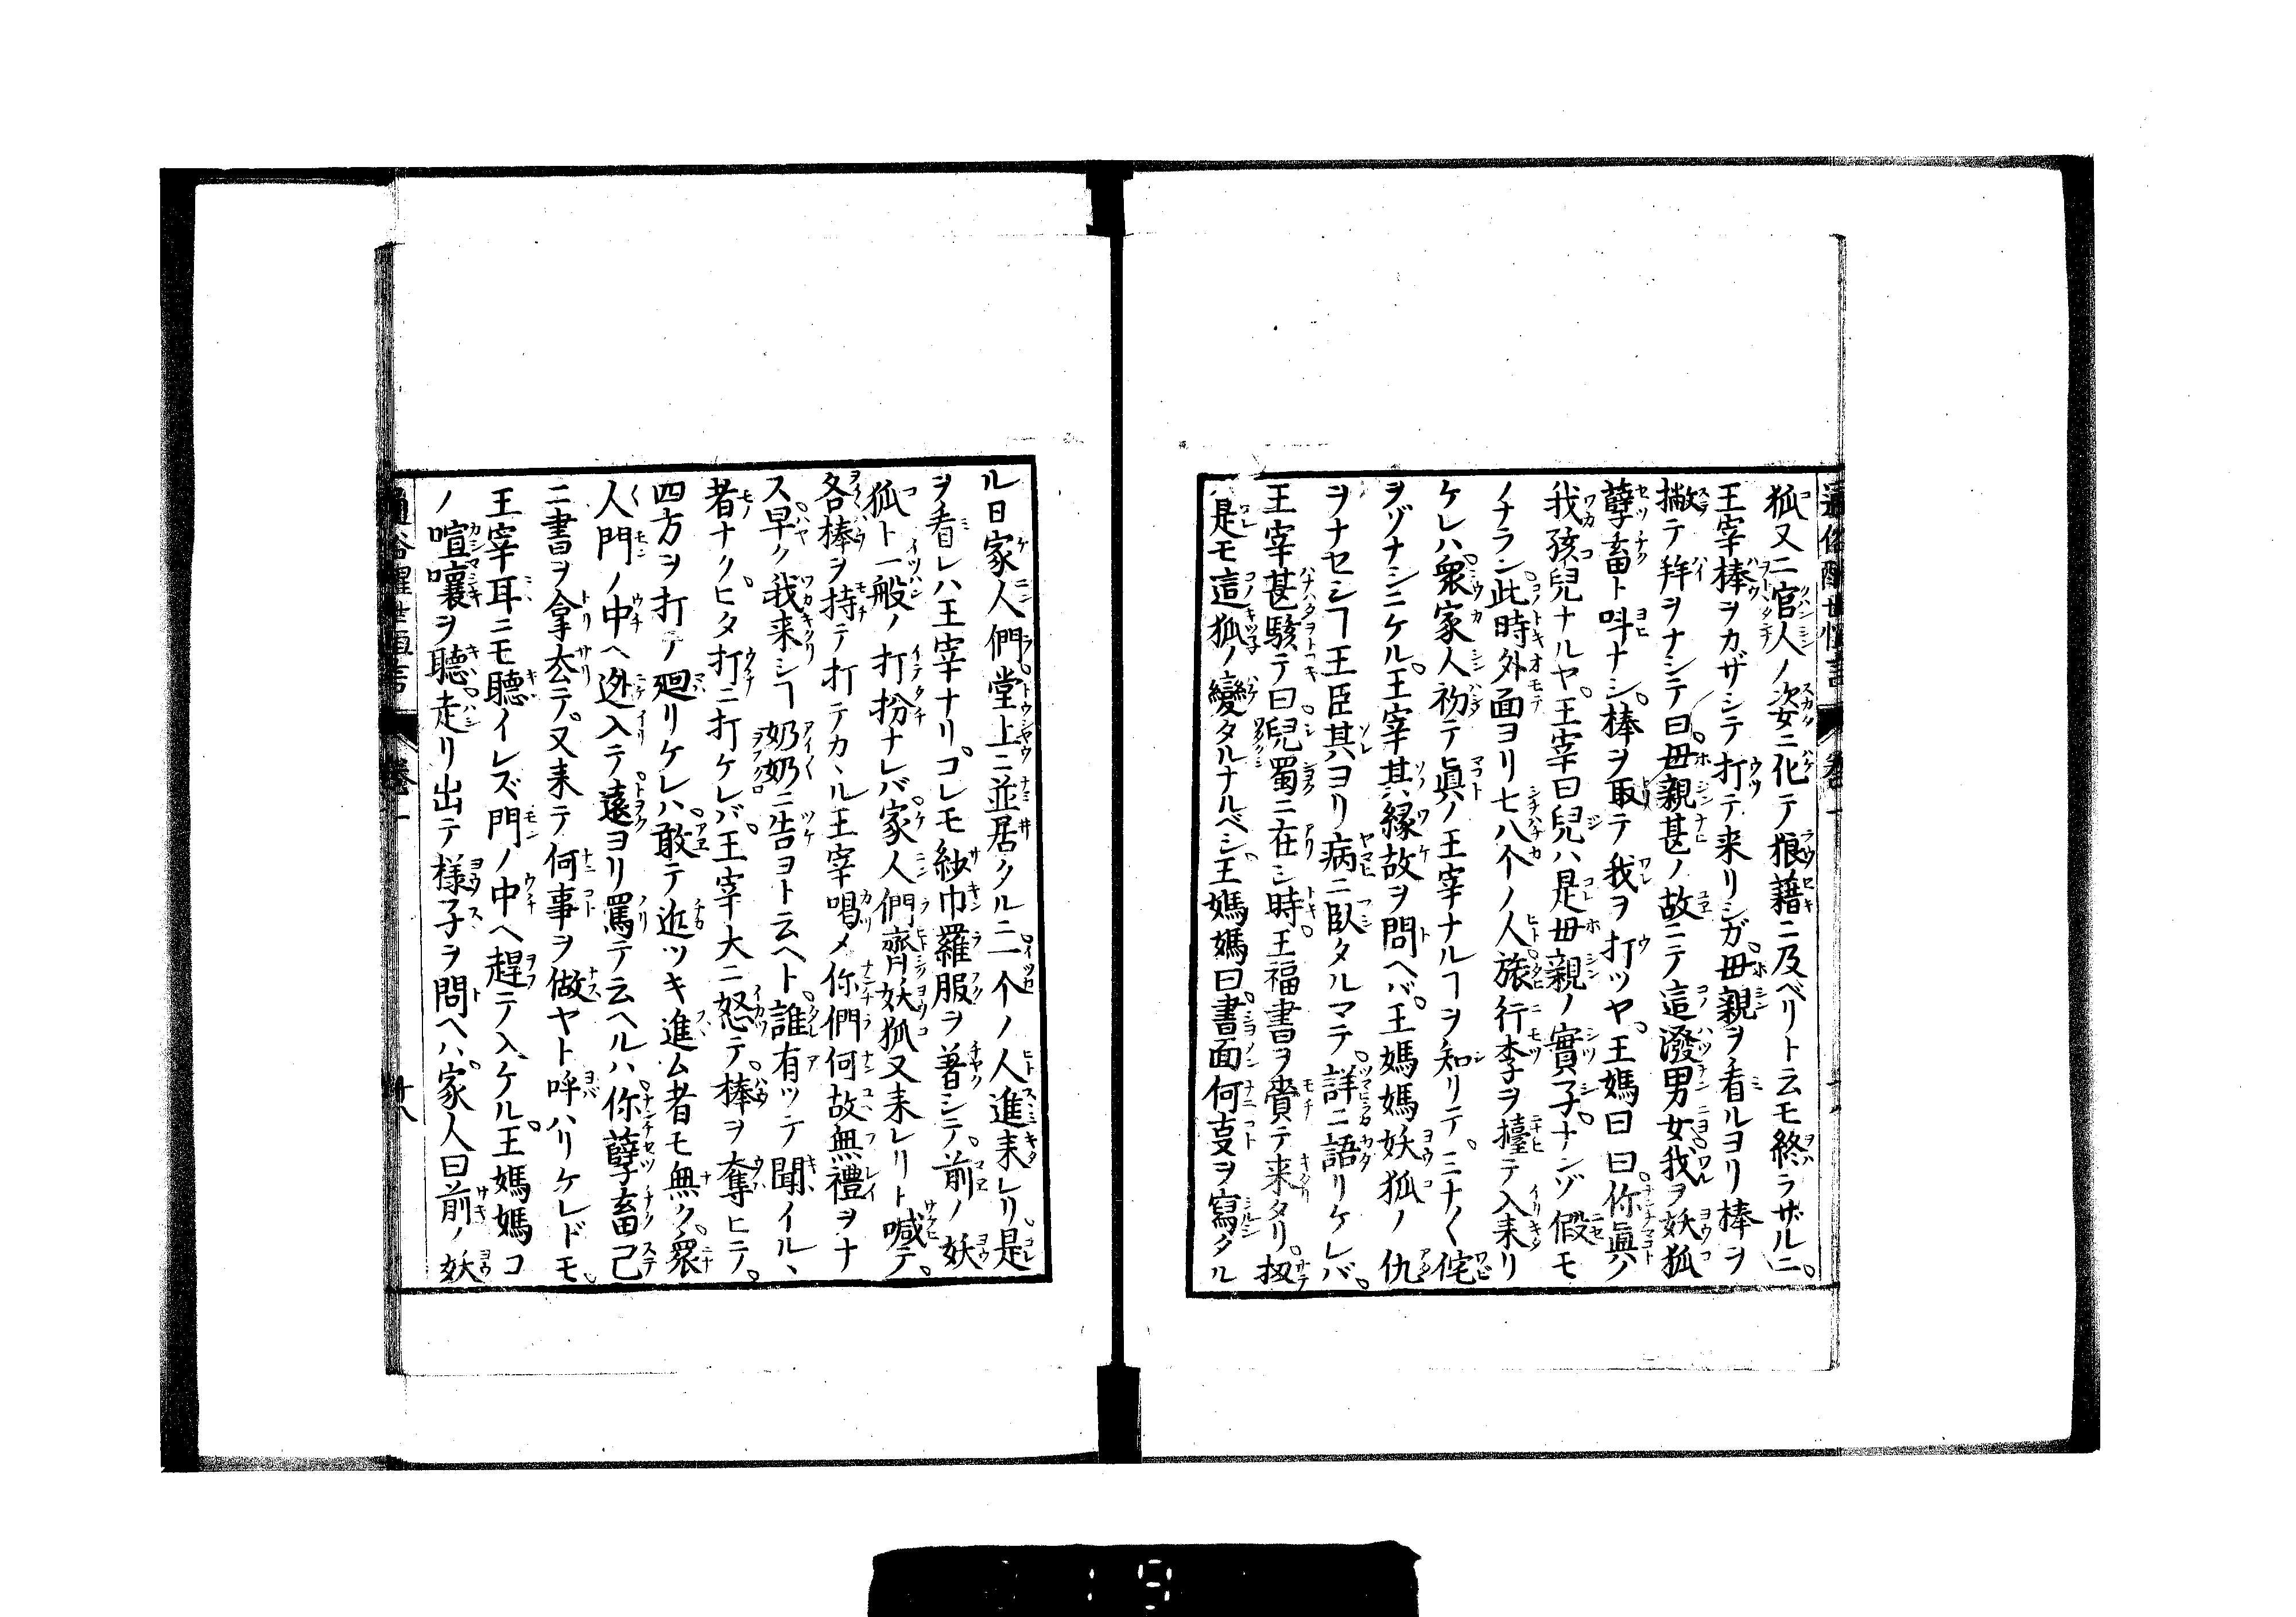 通俗醒世恒言
巻一
狐又二官人ノ姿ニ化テ狼藉ニ及ベリト云モ終ラザルニ。
王宰棒ヲカザシテ打テ来リシガ。毋親ヲ看ルヨリ棒ヲ
撇テ拜ヲナシテ曰。毋親甚ノ故ニテ這潑男女我ヲ妖狐
孽畜ト呌ナシ。棒ヲ取テ我ヲ打ツヤ。王媽曰曰。你眞ノ
我孩兒ナルヤ。王宰曰兒ハ是毋親ノ實子。ナンゾ假モ
ノナラン。此時外面ヨリ七八个ノ人。旅行李ヲ擡テ入来リ
ケレハ。衆家人初テ眞ノ王宰ナルヿヲ知リテ。ミナ〱侘
ヲゾナシニケル。王宰其縁故ヲ問ヘバ。王媽媽妖狐ノ仇
ヲナセシヿ王臣其ヨリ病ニ臥タルマテ。詳ニ語リケレバ。
王宰甚駭テ曰。兒蜀ニ在シ時。王福書ヲ賫テ来タリ。扨
ハ是モ這狐ノ變タルナルベシ。王媽媽曰。書面何叓ヲ寫タル
ル日家人們。堂上ニ並居タルニ一个ノ人進来レリ。是
ヲ看レハ王宰ナリ。コレモ紗巾羅服ヲ著シテ。前ノ妖
狐ト一般ノ打扮ナレバ。家人們齊妖狐又来レリト喊テ。
各棒ヲ持テ打テカヽル王宰喝メ你們何故無禮ヲナ
ス早ク我来シヿ奶奶ニ告ヨト云ヘト。誰有ツテ聞イルヽ
者ナク。ヒタ打ニ打ケレバ。王宰大ニ怒テ。棒ヲ奪ヒテ。
四方ヲ打テ廻リケレハ。敢テ近ツキ進ム者モ無ク。衆
人門ノ中ヘ迯入テ。遠ヨリ罵テ云ヘルハ。你孽畜己
ニ書ヲ拿去テ。又来テ何事ヲ做ヤト呼ハリケレドモ。
王宰耳ニモ聽イレズ。門ノ中ヘ趕テ入ケル。王媽媽コ
ノ喧嚷ヲ聽。走リ出テ様子ヲ問ヘハ。家人曰前ノ妖
通俗醒世恒言
巻一
廿八
19